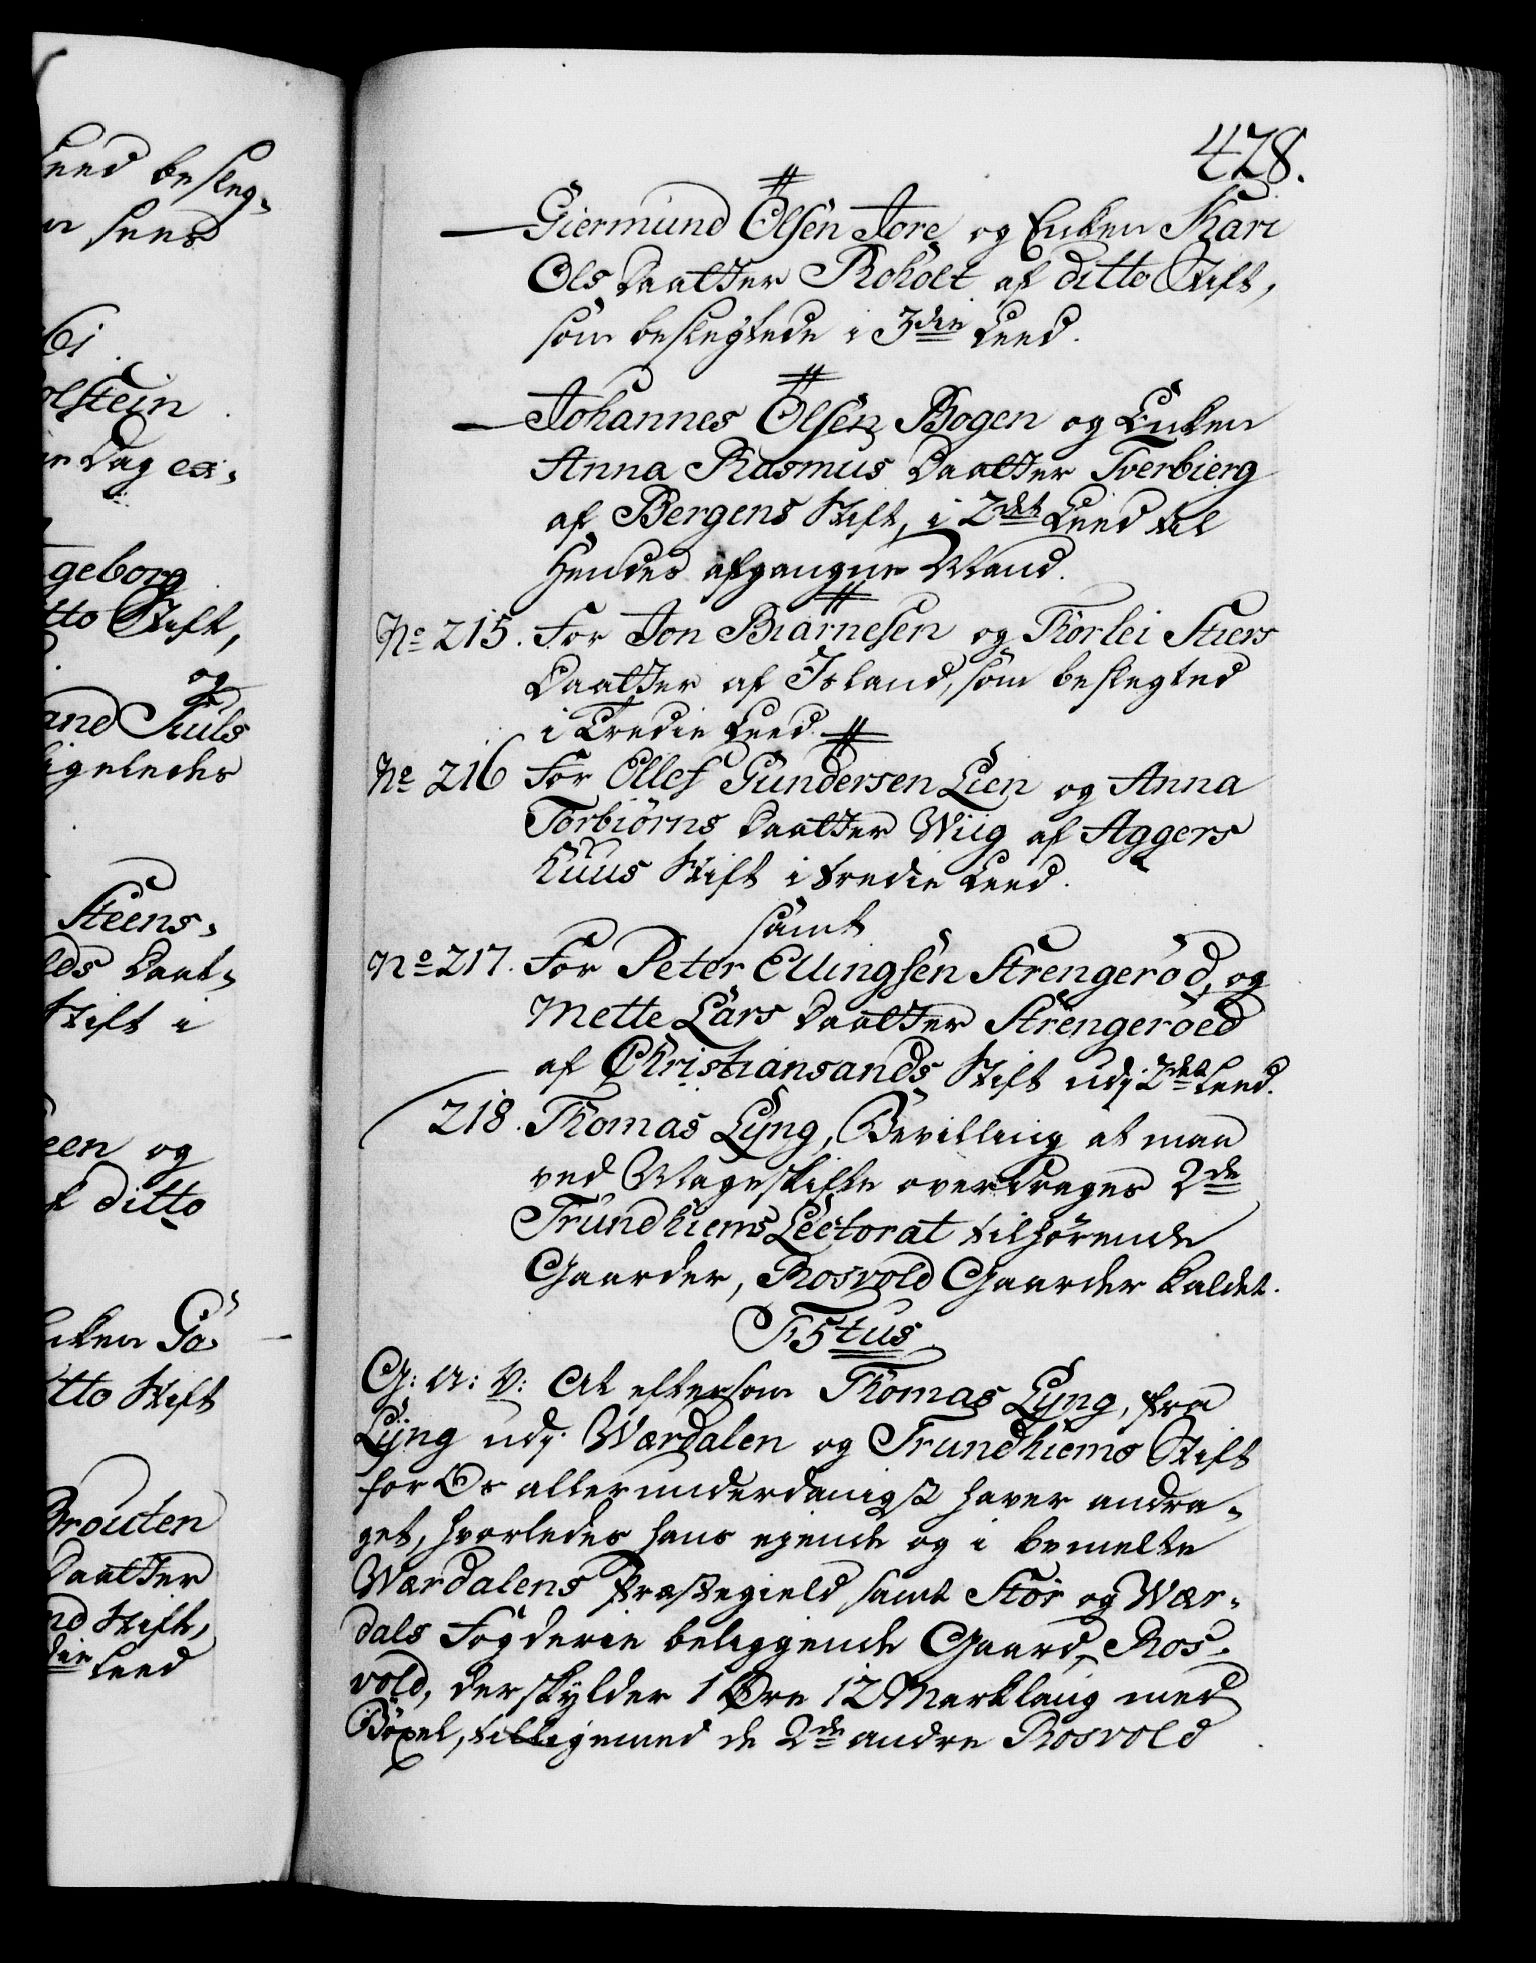 Leed besleg-
Leed
6i
olstein
Dag ex-
geborg
tto Stift,
og
and Juls
ligeledes
Steens-
lds Daat-
Stift i
een og
f ditto
Enken Gö-
tto Stift
Brouten
Daatter
nd Stift,
die Leed
428.
#
— Giermund Olsen Jore og Enken Kari
Ols Daatter Roholt af ditto Stift,
som beslegtede i 3die Leed.
#
— Johannes Olsen Bogen og Enken
Anna Rasmus Daatter Tverbierg
af Bergens Stift, i 2det Leed til
Hendes afgangne Mand.
#
No 215. For Jon Biarnesen og Thorlei
Daatter af Island, som beslegted
i Tredie Leed. #
No 216 For Ellef Gundersen Lien og Anna
Torbiörns Daatter Wiig af Aggers
huus Stift i tredie Leed.
samt
No 217. For Peter Ellingsen Strengeröd, og
Mette Lars Daatter Strengeröed
af Christiansands Stift udj 2det Leed.
218. Thomas Lyng, Bevilling at maa
ved Mageskifte overdrages 2de
Trundhiems Lectorat tilhörende
Gaarder, Rosvold Gaarder kaldet.
F 5tus
G: A: V: At eftersom Thomas Lyng, fra
Lÿng udj Wærdalen og Trundhiems Stift
for Os allerunderdanigst haver andra-
get, hvorledes hans egende og i bemelte
Wærdalens Præstegield samt Stör og Wær-
dals Fogderie beliggende Gaard, Ros-
vold, der skylder 1 Øre 12 Marklaug med
Böxel, tilligemed de 2de andre Rosvold